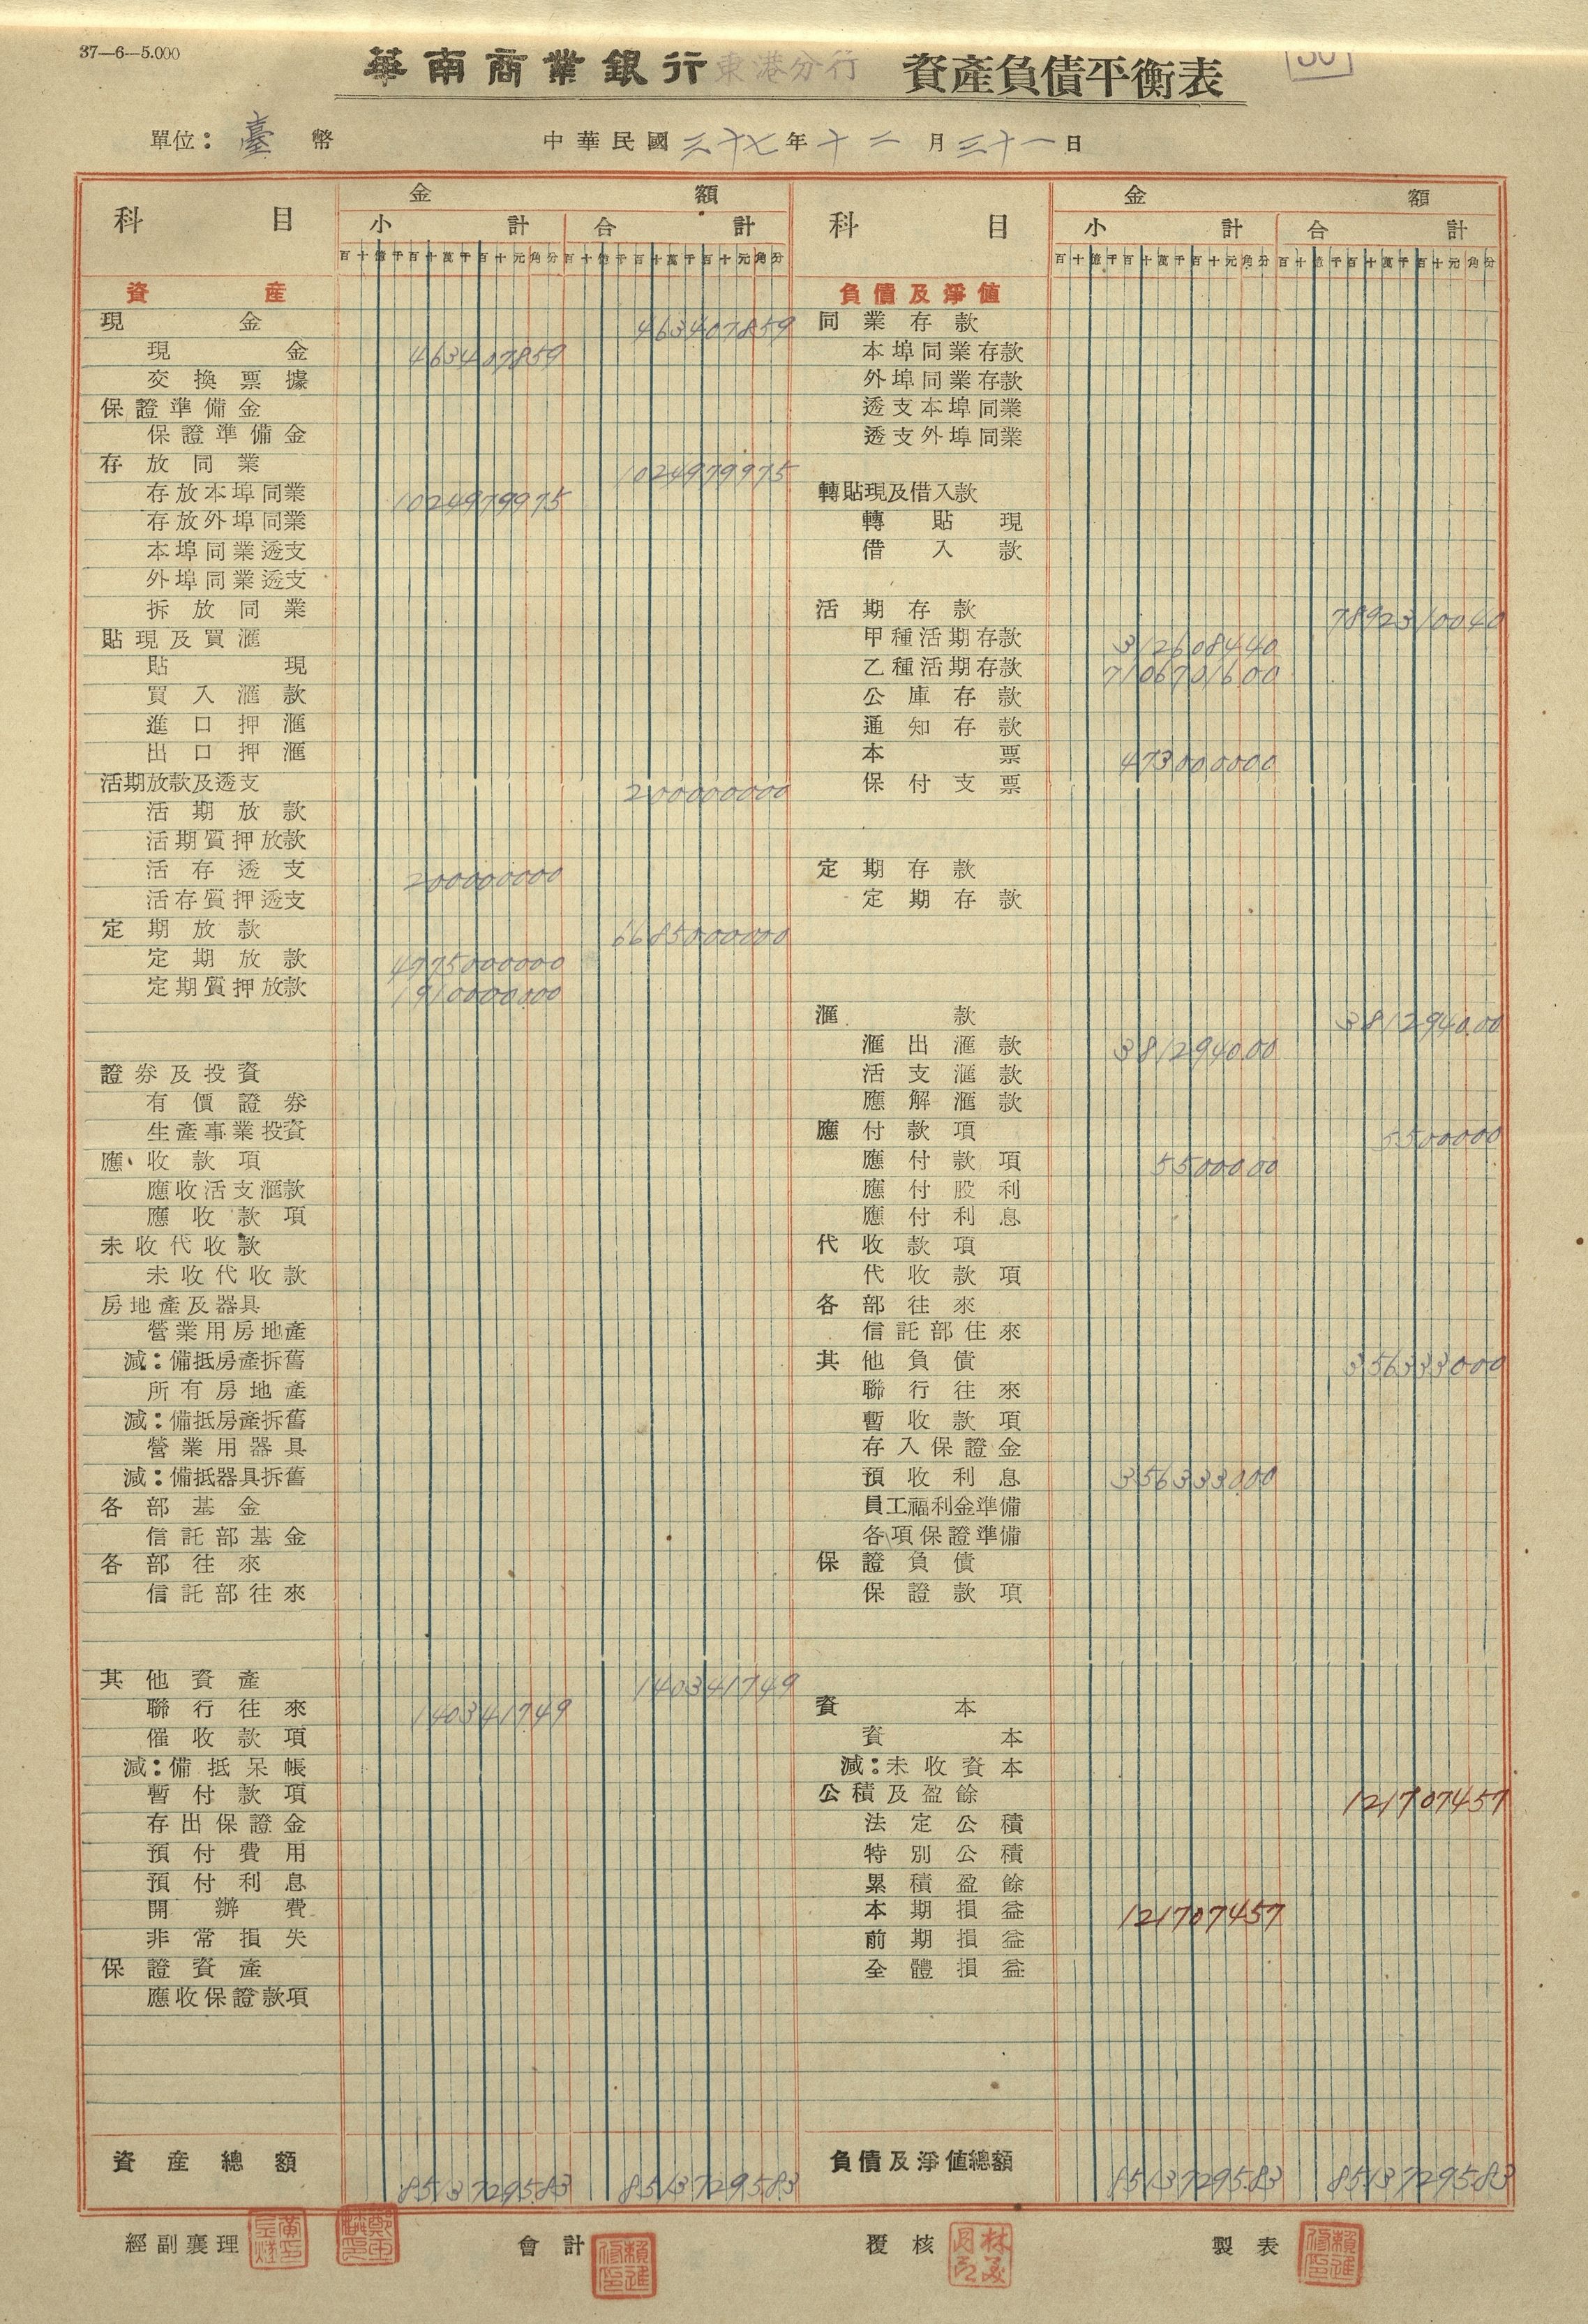 37—6—5.000
華南商業銀行東港分行 資產負債平衡表
單位：臺幣 中華民國三十七年十二月三十一日
科目 金額
小計 合計
百十億千百十萬千百十元角分 百十億千百十萬千百十元角分
資產
現金 463407859
現金 463407859
交換票據
保證準備金
保證準備金
存放同業 1024979975
存放本埠同業 1024979975
存放外埠同業
本埠同業透支
外埠同業透支
拆放同業
貼現及買滙
貼現
買入滙款
進口押滙
出口押滙
活期放款及透支 200000000
活期放款
活期質押放款
活存透支 200000000
活存質押透支
定期放款 6685000000
定期放款 4775000000
定期質押放款 1910000000
證券及投資
有價證券
生產事業投資
應收款項
應收活支滙款
應收款項
未收代收款
未收代收款
房地產及器具
營業用房地產
減：備抵房產拆舊
所有房地產
減：備抵房產拆舊
營業用器具
減：備抵器具拆舊
各部基金
信託部基金
各部往來
信託部往來
其他資產 140341749
聯行往來 140341749
催收款項
減：備抵呆帳
暫付款項
存出保證金
預付費用
預付利息
開辦費
非常損失
保證資產
應收保證款項
資產總額 8513729583 8513729583
科目 金額
小計 合計
百十億千百十萬千百十元角分 百十億千百十萬千百十元角分
負債及淨值
同業存款
本埠同業存款
外埠同業存款
透支本埠同業
透支外埠同業
轉貼現及借入款
轉貼現
借入款
活期存款 7892310040
甲種活期存款 312608440
乙種活期存款 7106701600
公庫存款
通知存款
本票 473000000
保付支票
定期存款
定期存款
滙款 381294000
滙出滙款 381294000
活支滙款
應解滙款
應付款項 5500000
應付款項 5500000
應付股利
應付利息
代收款項
代收款項
各部往來
信託部往來
其他負債 356333000
聯行往來
暫收款項
存入保證金
預收利息 356333000
員工福利金準備
各項保證準備
保證負債
保證款項
資本
資本
減：未收資本
公積及盈餘 121707457
法定公積
特別公積
累積盈餘
本期損益 121707457
前期損益
全體損益
負債及淨值總額 8513729583 8513729583
經副襄理 會計 覆核 製表